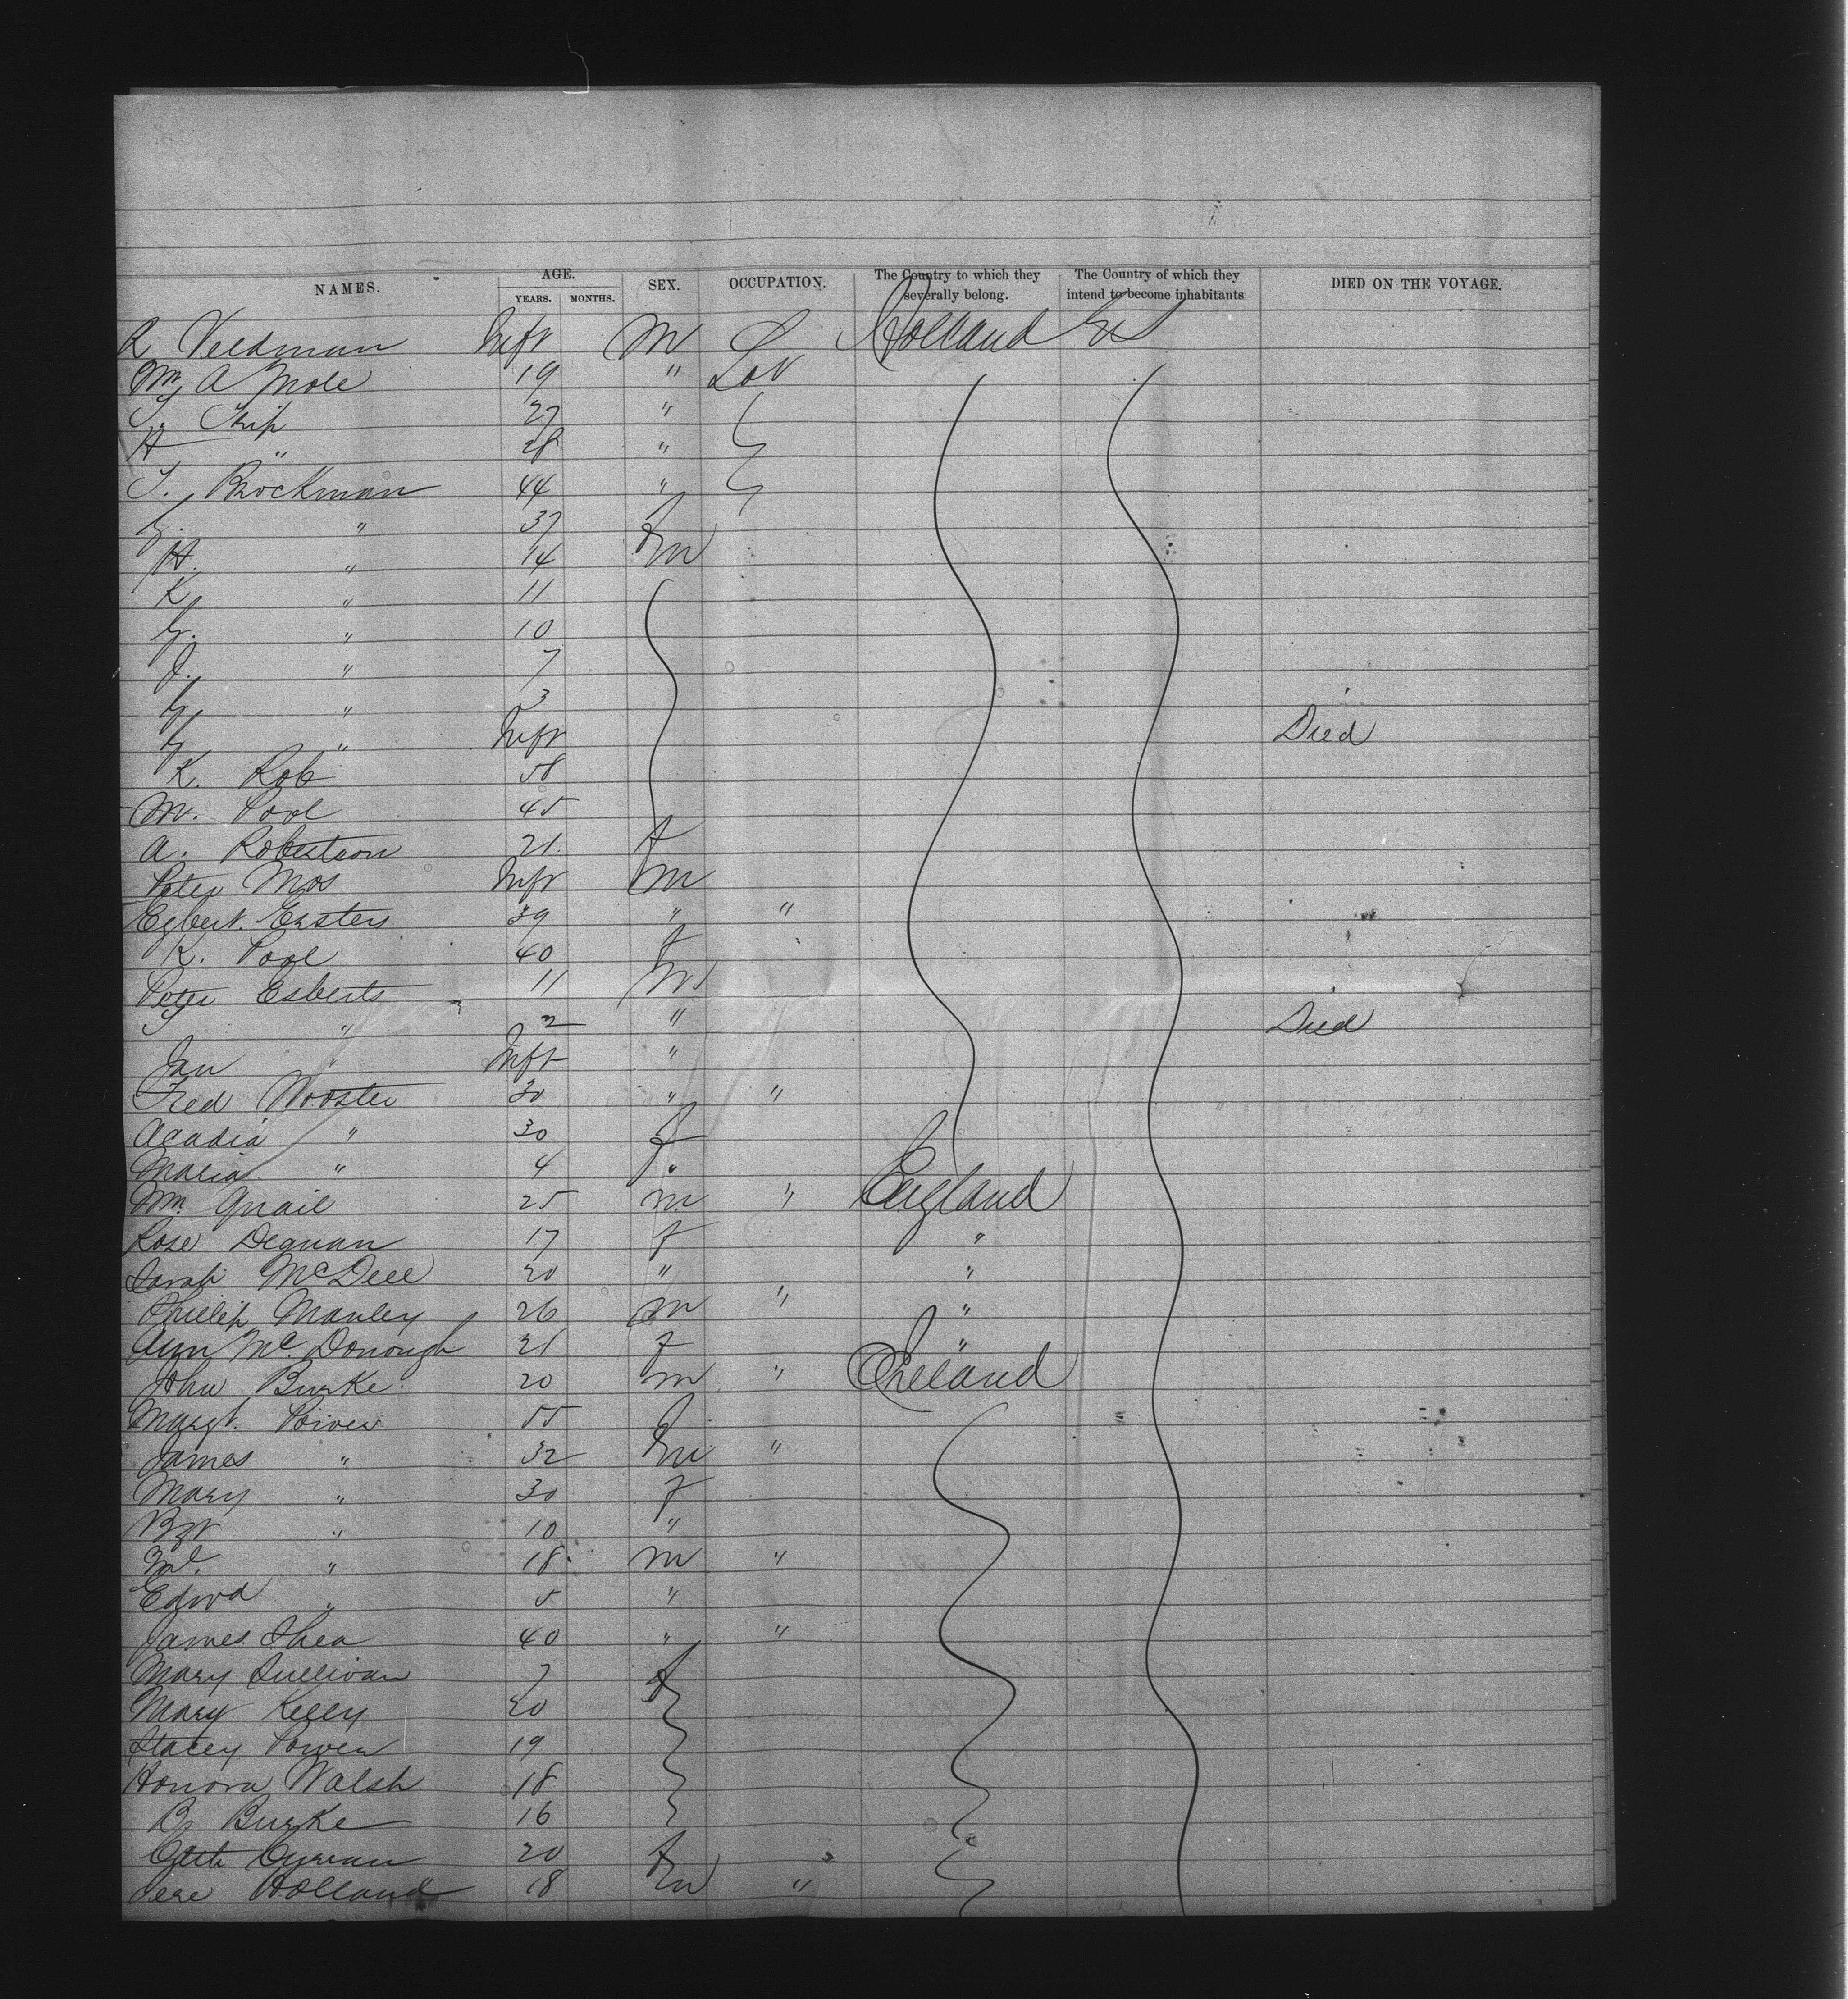 NAMES. AGE. SEX. OCCUPATION. The Country to which they severally belong. The Country of which they intend to become inhabitants DIED ON THE VOYAGE.
YEARS. MONTHS.
R. Veldman Inft M Holland
Wm A Mole 19 " Lab
27 "
H " 28 "
T. Brockman 44 "
G. " 37 f
H. " 14 m
K. " 11
G. " 10
J. " 7
G. " 3
G. " Inft Died
K. Rob 58
M. Pool 45
A. Robertson 21 f
Peter Mos Inft m
Egbert Ersters 39 " "
K. Pool 40 f
Peter Esberts 11 m
" 2 " Died
Jan " Inft "
Fred Wooster 30 " "
Acadia " 30 f
Maria " 4 "
Wm. Quail 25 m " England
Rose Degnan 17 f "
Sarah McDell 20 " "
Phillip Manley 26 m " "
Ann Mc Donough 21 f "
John Burke 20 m " Ireland
Margt. Power 55 f
James " 32 m "
Mary " 30 f
Bgt " 10 "
Ml. " 18 m "
Edwd " 5 "
James Shea 40 " "
Mary Sullivan 7 f
Mary Kelly 20
Stacey Power 19
Honora Walsh 18
B. Burke 16
Cath Curran 20 f
Jere Holland 18 m "